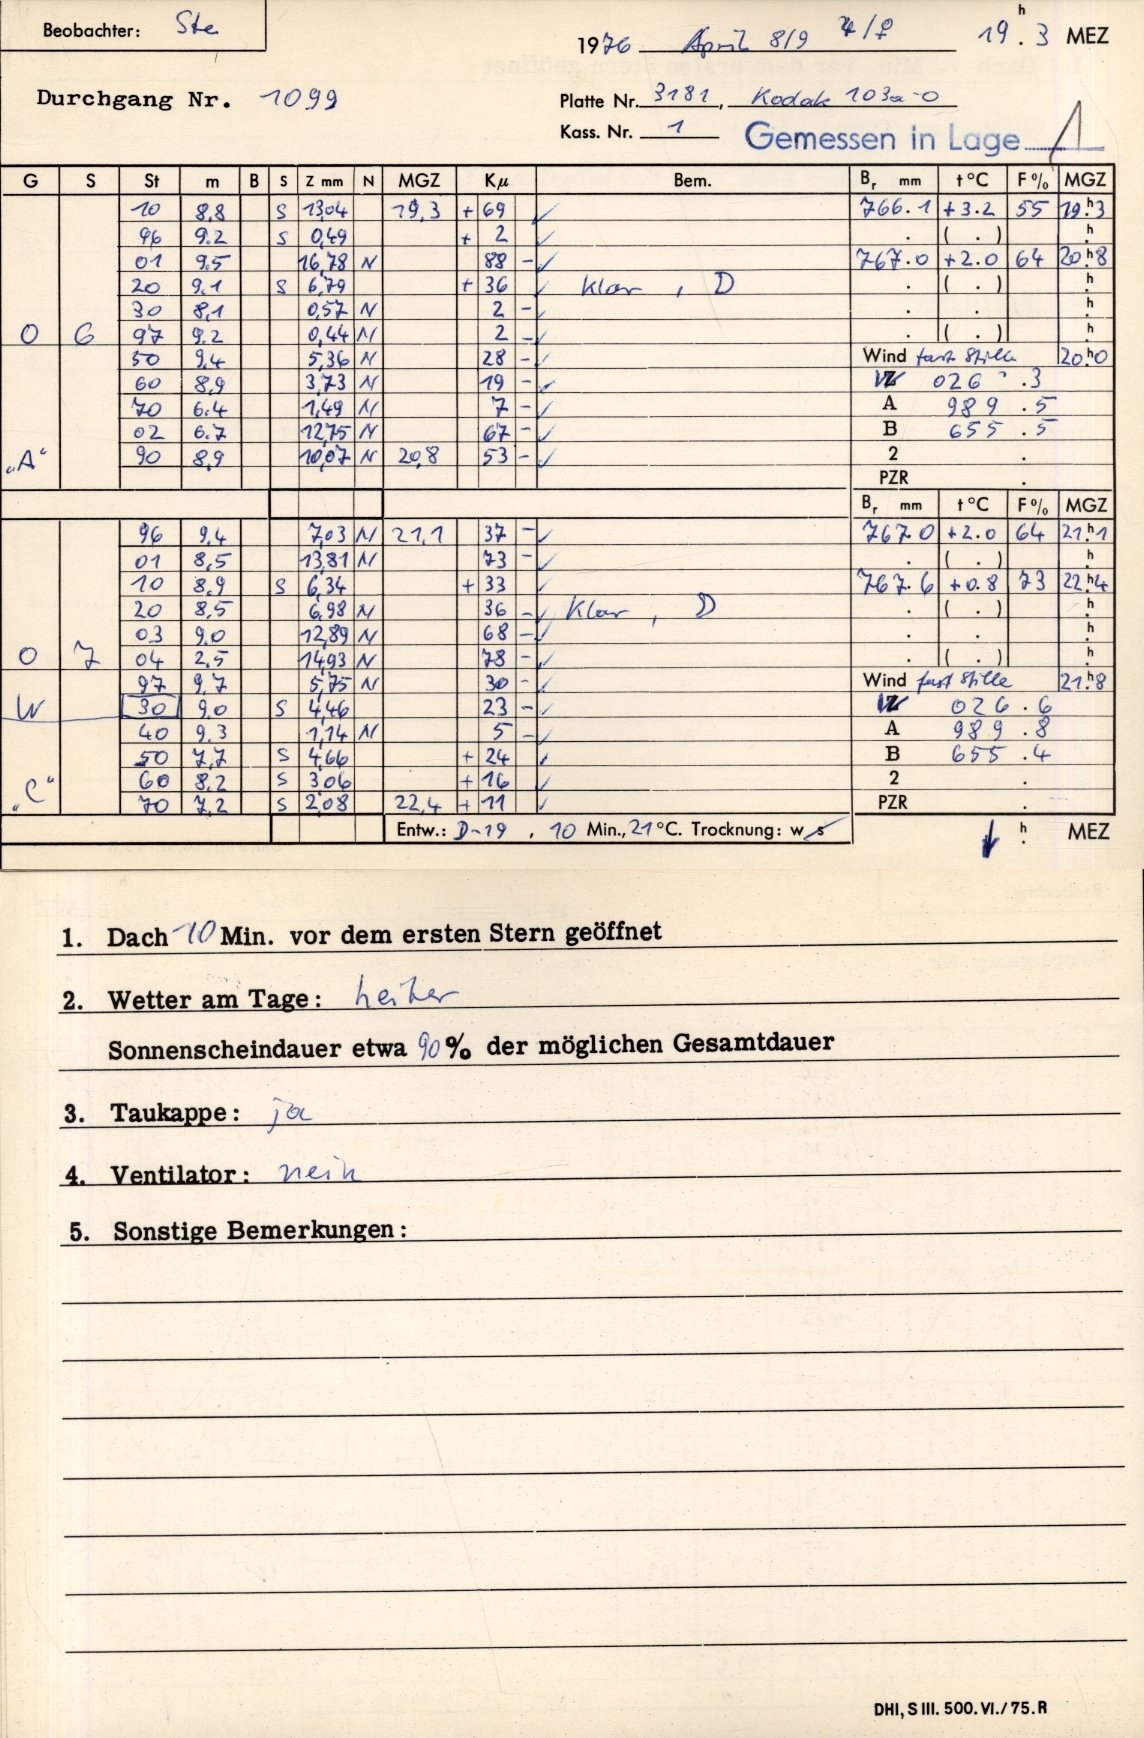 Beobachter: Ste
1976 April 8/9 ♃/♀ 19h.3 MEZ
Durchgang Nr. 1099
Platte Nr. 3181, Kodak 103a-O
Kass. Nr. 1 Gemessen in Lage 1
G S St m B S Z mm N MGZ Kμ Bem. Br mm t °C F% MGZ
10 8,8 S 13,04 19,3 + 69 ✓ 766.1 +3.2 55 19h.3
96 9.2 S 0,49 + 2 ✓ . ( . ) h.
01 9.5 16,78 N 88 - ✓ 767.0 +2.0 64 20h.8
20 9.1 S 6,79 + 36 ✓ Klar, D . ( . ) h.
30 8,1 0,57 N 2 - ✓ . . h.
O 6 97 9.2 0,44 N 2 - ✓ . ( . ) h.
50 9.4 5,36 N 28 - ✓ Wind fast Stille 20h.0
60 8,9 3,73 N 19 - ✓ Z 026.3
70 6.4 1,49 N 7 - ✓ A 989.5
02 6.7 12,75 N 67 - ✓ B 655.5
„A“ 90 8,9 10,07 N 20,8 53 - ✓ 2 .
PZR .
Br mm t °C F% MGZ
96 9,4 7,03 N 21,1 37 - ✓ 767.0 +2.0 64 21h.1
01 8,5 13,81 N 73 - ✓ . ( . ) h.
10 8,9 S 6,34 + 33 ✓ 767.6 +0.8 73 22h.4
20 8,5 6,98 N 36 - ✓ Klar, D . ( . ) h.
03 9,0 12,89 N 68 - ✓ . . h.
O 7 04 2,5 14,93 N 78 - ✓ . ( . ) h.
97 9,7 5,75 N 30 - ✓ Wind fast Stille 21h.8
W 30 9,0 S 4,46 23 - ✓ Z 026.6
40 9.3 1,14 N 5 - ✓ A 989.8
50 7,7 S 4,66 + 24 ✓ B 655.4
60 8,2 S 3,06 + 16 ✓ 2 .
„C“ 70 7,2 S 2,08 22,4 + 11 ✓ PZR .
Entw.: D-19, 10 Min., 21°C. Trocknung: w s ↓ h. MEZ
1. Dach 10 Min. vor dem ersten Stern geöffnet
2. Wetter am Tage: heiter
Sonnenscheindauer etwa 90% der möglichen Gesamtdauer
3. Taukappe: ja
4. Ventilator: nein
5. Sonstige Bemerkungen:
DHI, S III. 500. VI./75. R